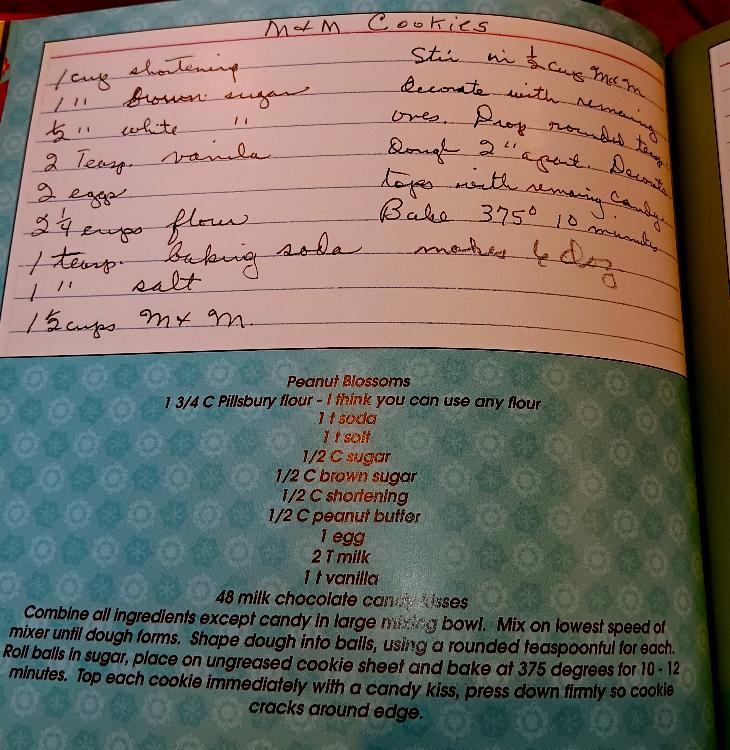 M & M Cookies
1 cup shortening
1 " brown sugar
1/2 " white "
2 Teasp. vanila
2 eggs
2 1/4 cups flour
1 teasp. baking soda
1 " salt
1 1/2 cups M & M.
Stir in 1/2 cup M & M.
Decorate with remaining
ones. Drop rounded teasp.
Dough 2" apart. Decorate
tops with remaing candy
Bake 375° 10 minutes
makes 6 doz
Peanut Blossoms
1 3/4 C Pillsbury flour - I think you can use any flour
1 t soda
1 t salt
1/2 C sugar
1/2 C brown sugar
1/2 C shortening
1/2 C peanut butter
1 egg
2 T milk
1 t vanilla
48 milk chocolate candy kisses
Combine all ingredients except candy in large mixing bowl. Mix on lowest speed of
mixer until dough forms. Shape dough into balls, using a rounded teaspoonful for each.
Roll balls in sugar, place on ungreased cookie sheet and bake at 375 degrees for 10 - 12
minutes. Top each cookie immediately with a candy kiss, press down firmly so cookie
cracks around edge.